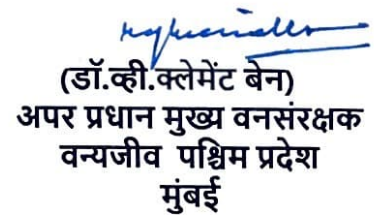 (डॉ.व्ही.क्लेमेंट बेन)
अपर प्रधान मुख्य वनसंरक्षक
वन्यजीव पश्चिम प्रदेश
मुंबई